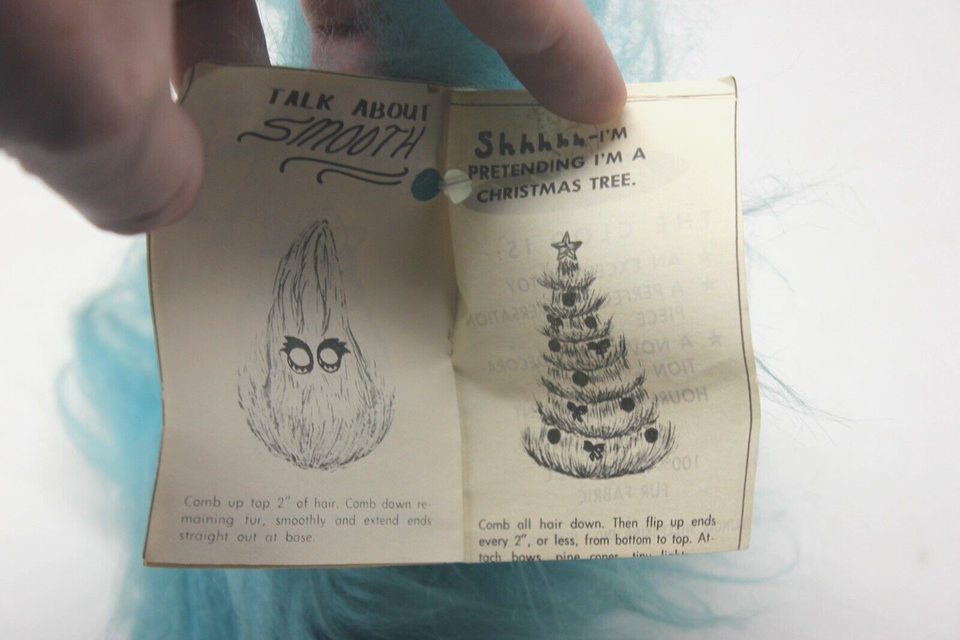 TALK ABOUT
SMOOTH
Comb up top 2" of hair. Comb down re-
maining fur, smoothly and extend ends
straight out at base.
Shhhhh-I'M
PRETENDING I'M A
CHRISTMAS TREE.
Comb all hair down. Then flip up ends
every 2", or less, from bottom to top. At-
tach bows, pine cones, tiny lights